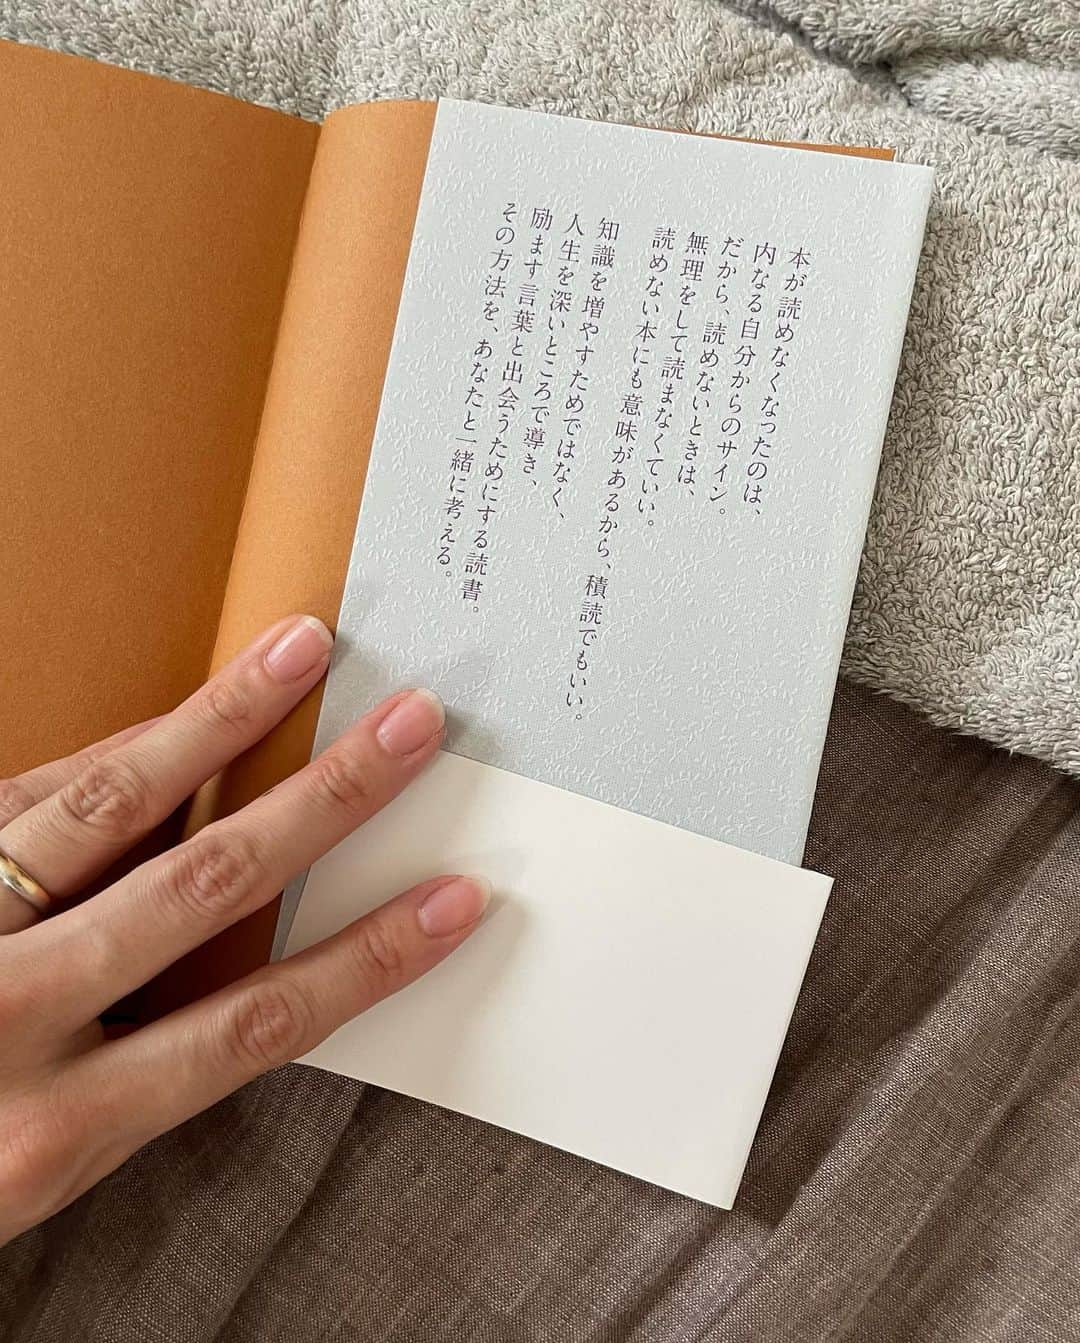 本が読めなくなったのは、
内なる自分からのサイン。
だから、読めないときは、
無理をして読まなくていい。
読めない本にも意味があるから、積読でもいい。
知識を増やすためではなく、
人生を深いところで導き、
励ます言葉と出会うためにする読書。
その方法を、あなたと一緒に考える。